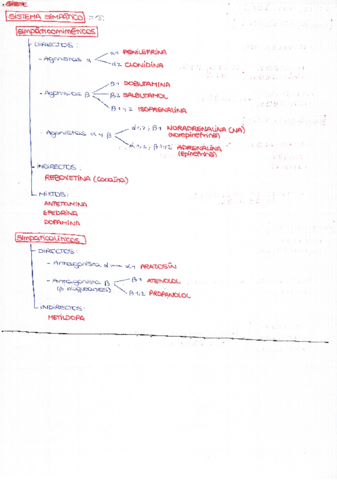 SISTEMA SIMPÁTICO
Simpáticomiméticos
DIRECTOS:
- Agonistas α
α1 FENILEFRINA
α2 CLONIDINA
- Agonistas β
β1 DOBUTAMINA
β2 SALBUTAMOL
β1,2 ISOPRENALINA
- Agonistas α y β
α1,2; β1 NORADRENALINA (NA)
(norepinefrina)
α1,2; β1,2 ADRENALINA
(epinefrina)
INDIRECTOS:
REBOXETINA (cocaína)
MIXTOS:
ANFETAMINA
EFEDRINA
DOPAMINA
Simpaticolíticos
DIRECTOS:
- Antagonista α
α1 PRAZOSÍN
- Antagonista β
(β bloqueantes)
β1 ATENOLOL
β1,2 PROPANOLOL
INDIRECTOS:
METILDOPA